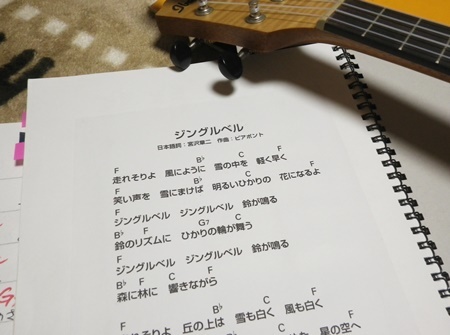 ジングルベル
日本語詞：宮沢章二 作曲：ピアポント
F B♭ C F
走れそりよ 風にように 雪の中を 軽く早く
F B♭ C F
笑い声を 雪にまけば 明るいひかりの 花になるよ
F
ジングルベル ジングルベル 鈴が鳴る
B♭ F G7 C
鈴のリズムに ひかりの輪が舞う
F
ジングルベル ジングルベル 鈴が鳴る
B♭ F C F
森に林に 響きながら
F B♭
れそりよ 丘の上は 雪も白く 風も白く
星の空へ